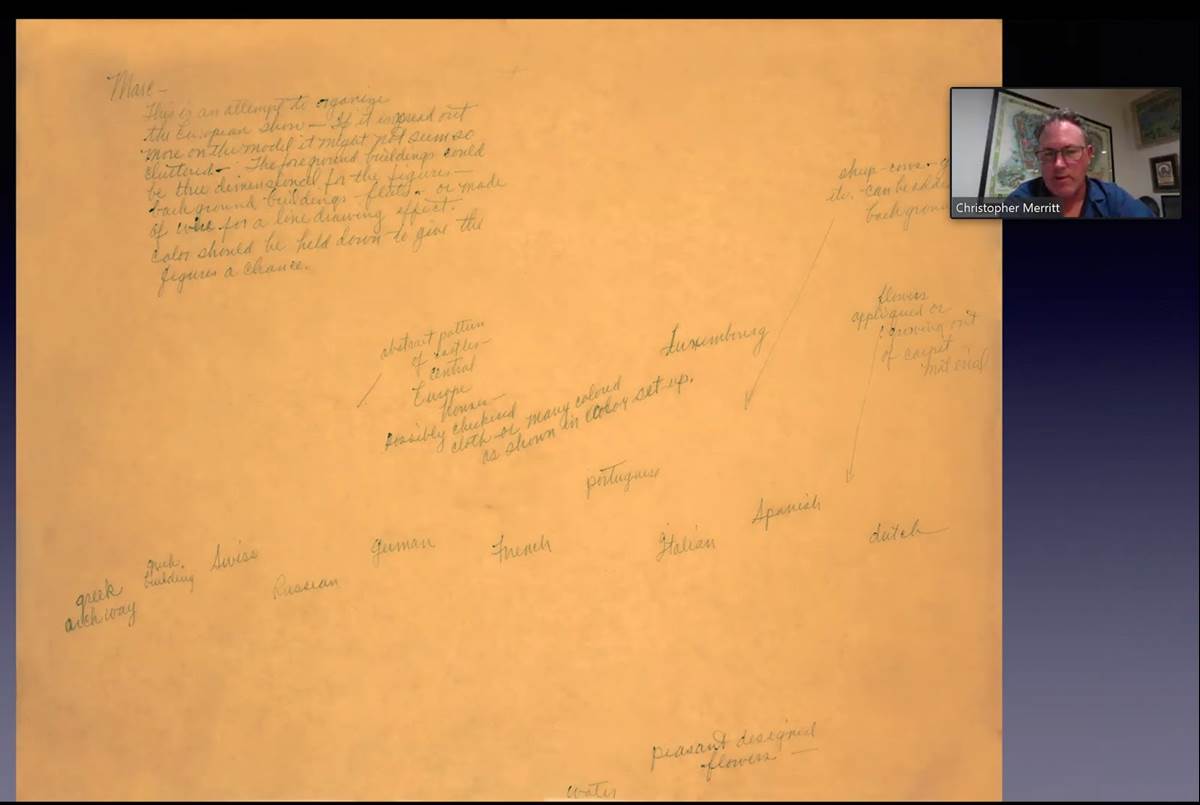 Marc -
This is an attempt to organize
the European show - If it is spread out
more on the model it might not seem so
clustered - The foreground buildings could
be three dimensional for the figures -
background buildings - flats - or made
of wire for a line drawing effect.
color should be held down to give the
figures a chance.
sheep - cows -
etc. - can be added
background
Christopher Merritt
flowers
appliqued or
growing out
of carpet
material
abstract pattern
of castles -
central
Europe
houses -
possibly checkered
cloth or many colored
as shown in color set-up.
Luxembourg
portuguese
Spanish
dutch
Italian
French
German
Russian
Swiss
greek
building
greek
archway
peasant designed
flowers -
water